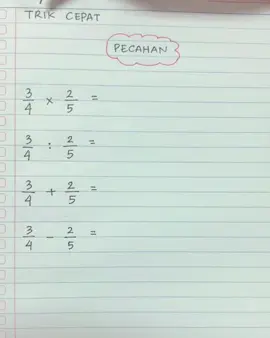 TRIK CEPAT
PECAHAN
3/4 × 2/5 =
3/4 : 2/5 =
3/4 + 2/5 =
3/4 - 2/5 =